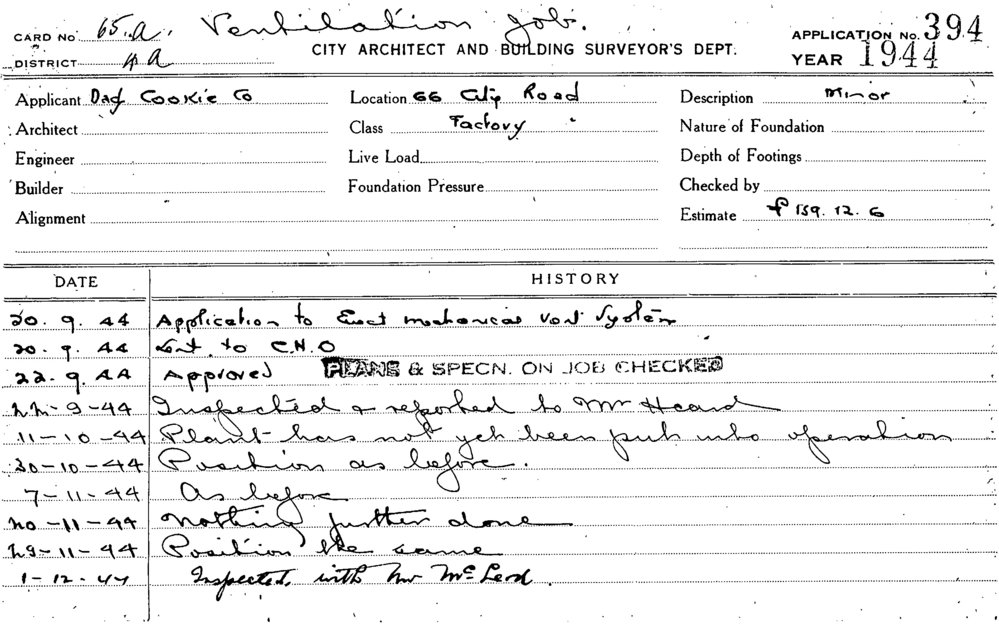 CARD No 65.a. Ventilation Job. APPLICATION No. 394
DISTRICT 4A CITY ARCHITECT AND BUILDING SURVEYOR'S DEPT. YEAR 1944
Applicant Cookie Co Location 66 City Road Description Minor
Architect Class Factory Nature of Foundation
Engineer Live Load Depth of Footings
Builder Foundation Pressure Checked by
Alignment Estimate £ 159. 12. 6
DATE HISTORY
20. 9. 44 Application to Erect mechanical Vent System
20. 9. 44 Sent to C.H.O
22. 9. 44 Approved PLANS & SPECN. ON JOB CHECKED
22-9-44 Inspected & reported to Mr Heard
11-10-44 Plant has not yet been put into operation
30-10-44 Position as before.
7-11-44 As before
20-11-44 Nothing further done
29-11-44 Position the same
1-12-44 Inspected with Mr McLeod.